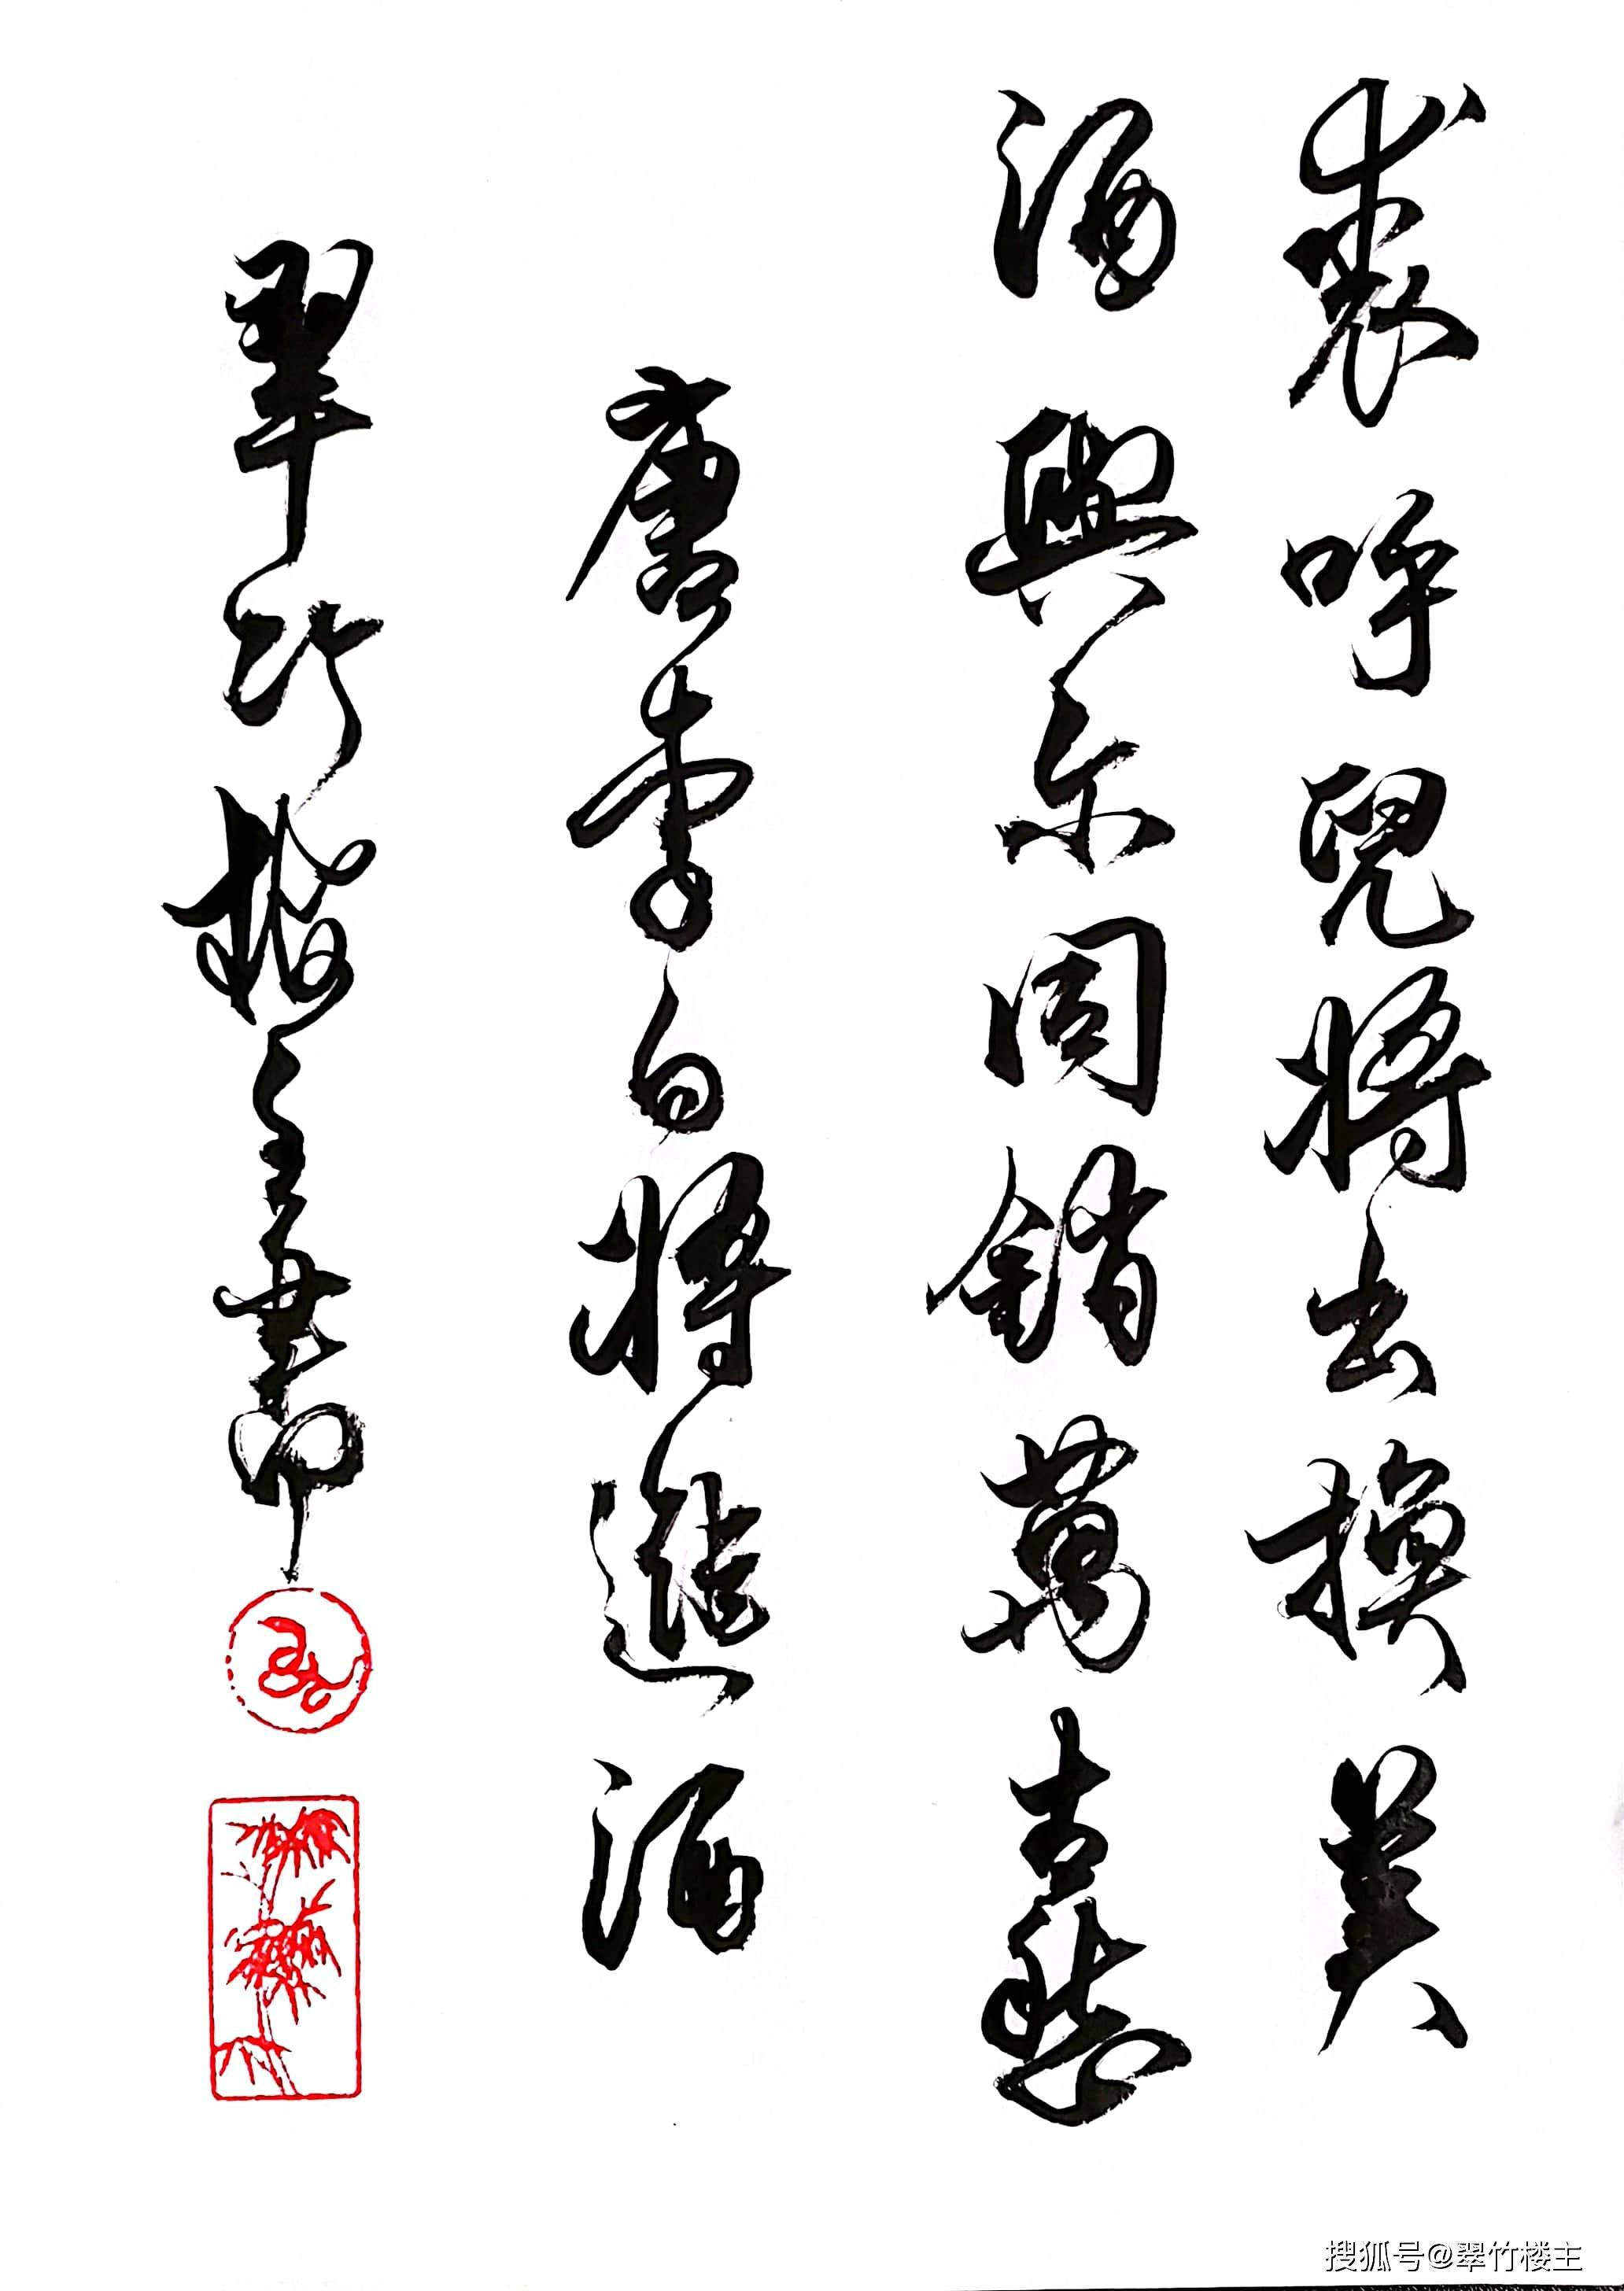 裘呼兒將出換美
酒與尔同銷萬古愁
唐李白將進酒
翠竹楼主書印
搜狐号@翠竹楼主